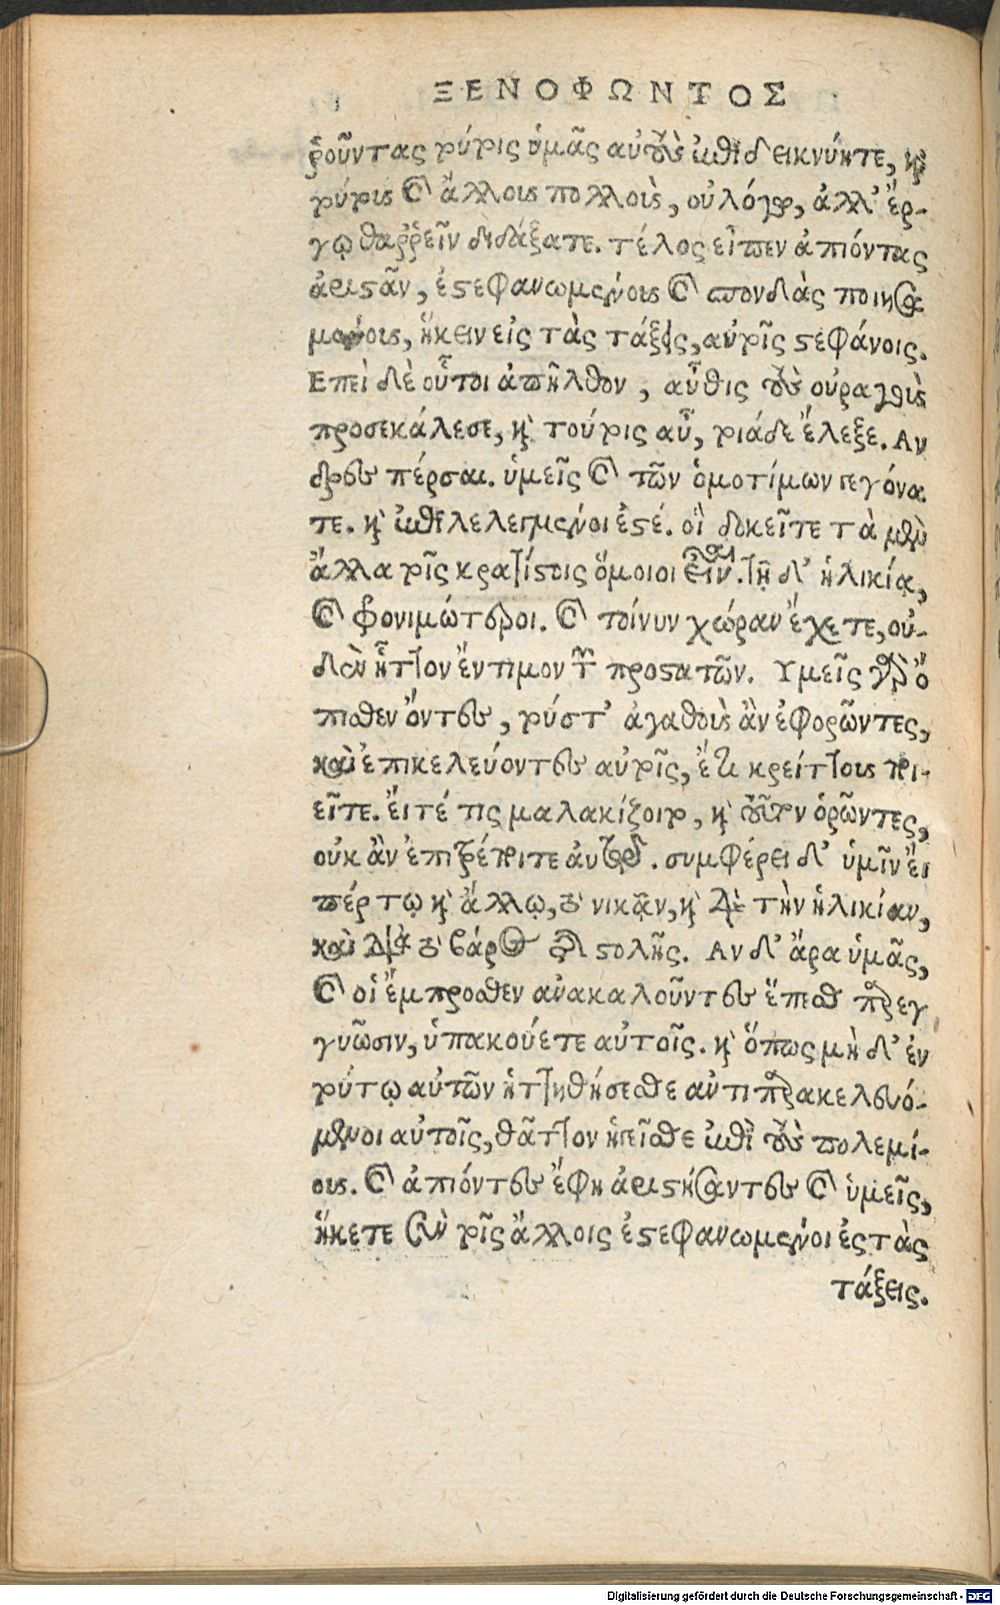 ΞΕΝΟΦΩΝΤΟΣ
ῤοῦντας τούτοις ὑμᾶς αὐτοὺς ἐπιδεικνύητε, καὶ
τούτους καὶ ἄλλους πολλοὺς, οὐ λόγῳ, ἀλλ' ἔρ-
γῳ θαῤῥεῖν διδάξατε. τέλος εἶπεν ἀπιόντας
ἀριστᾶν, ἐστεφανωμένους καὶ σπονδὰς ποιησα
μένους, ἥκειν εἰς τὰς τάξεις, αὐτοῖς στεφάνοις.
Επεὶ δὲ οὗτοι ἀπῆλθον, αὖθις τοὺς οὐραγοὺς
προσεκάλεσε, καὶ τούτοις αὖ, τοιάδε ἔλεξε. Αν
δρες πέρσαι. ὑμεῖς καὶ τῶν ὁμοτίμων γεγόνα
τε. καὶ ἐπιλελεγμένοι ἐστέ. οἳ δοκεῖτε τὰ μὲν
ἄλλα τοῖς κρατίστοις ὅμοιοι εἶναι. τῇ δ' ἡλικίᾳ,
καὶ φρονιμώτεροι. καὶ τοίνυν χώραν ἔχετε, οὐ-
δὲν ἧττον ἔντιμον τῶν προστατῶν. Υμεῖς γὰρ ὄ
πισθεν ὄντες, τούς τ' ἀγαθοὺς ἂν ἐφορῶντες,
καὶ ἐπικελεύοντες αὐτοῖς, ἔτι κρείττους ποι-
εῖτε. ἔι τέ τις μαλακίζοιτο, καὶ τοῦτον ὁρῶντες,
οὐκ ἂν ἐπιτρέποιτε αὐτῷ. συμφέρει δ' ὑμῖν ἔι
πέρ τῳ καὶ ἄλλῳ, τὸ νικᾷν, καὶ διὰ τὴν ἡλικίαν,
καὶ διὰ τὸ βάρος τῆς στολῆς. Αν δ' ἄρα ὑμᾶς,
καὶ οἱ ἔμπροσθεν ἀνακαλοῦντες ἕπεσθαι παρεγ
γυῶσιν, ὑπακούετε αὐτοῖς. καὶ ὅπως μὴ δ' ἐν
τούτῳ αὐτῶν ἡττηθήσεσθε ἀντιπαρακελευό-
μενοι αὐτοῖς, θᾶττον ἡγεῖσθε ἐπὶ τοὺς πολεμί-
ους. καὶ ἀπιόντες ἔφη ἀριστήσαντες καὶ ὑμεῖς,
ἥκετε σὺν τοῖς ἄλλοις ἐστεφανωμένοι ἐς τὰς
τάξεις.
Digitalisierung gefördert durch die Deutsche Forschungsgemeinschaft - DFG